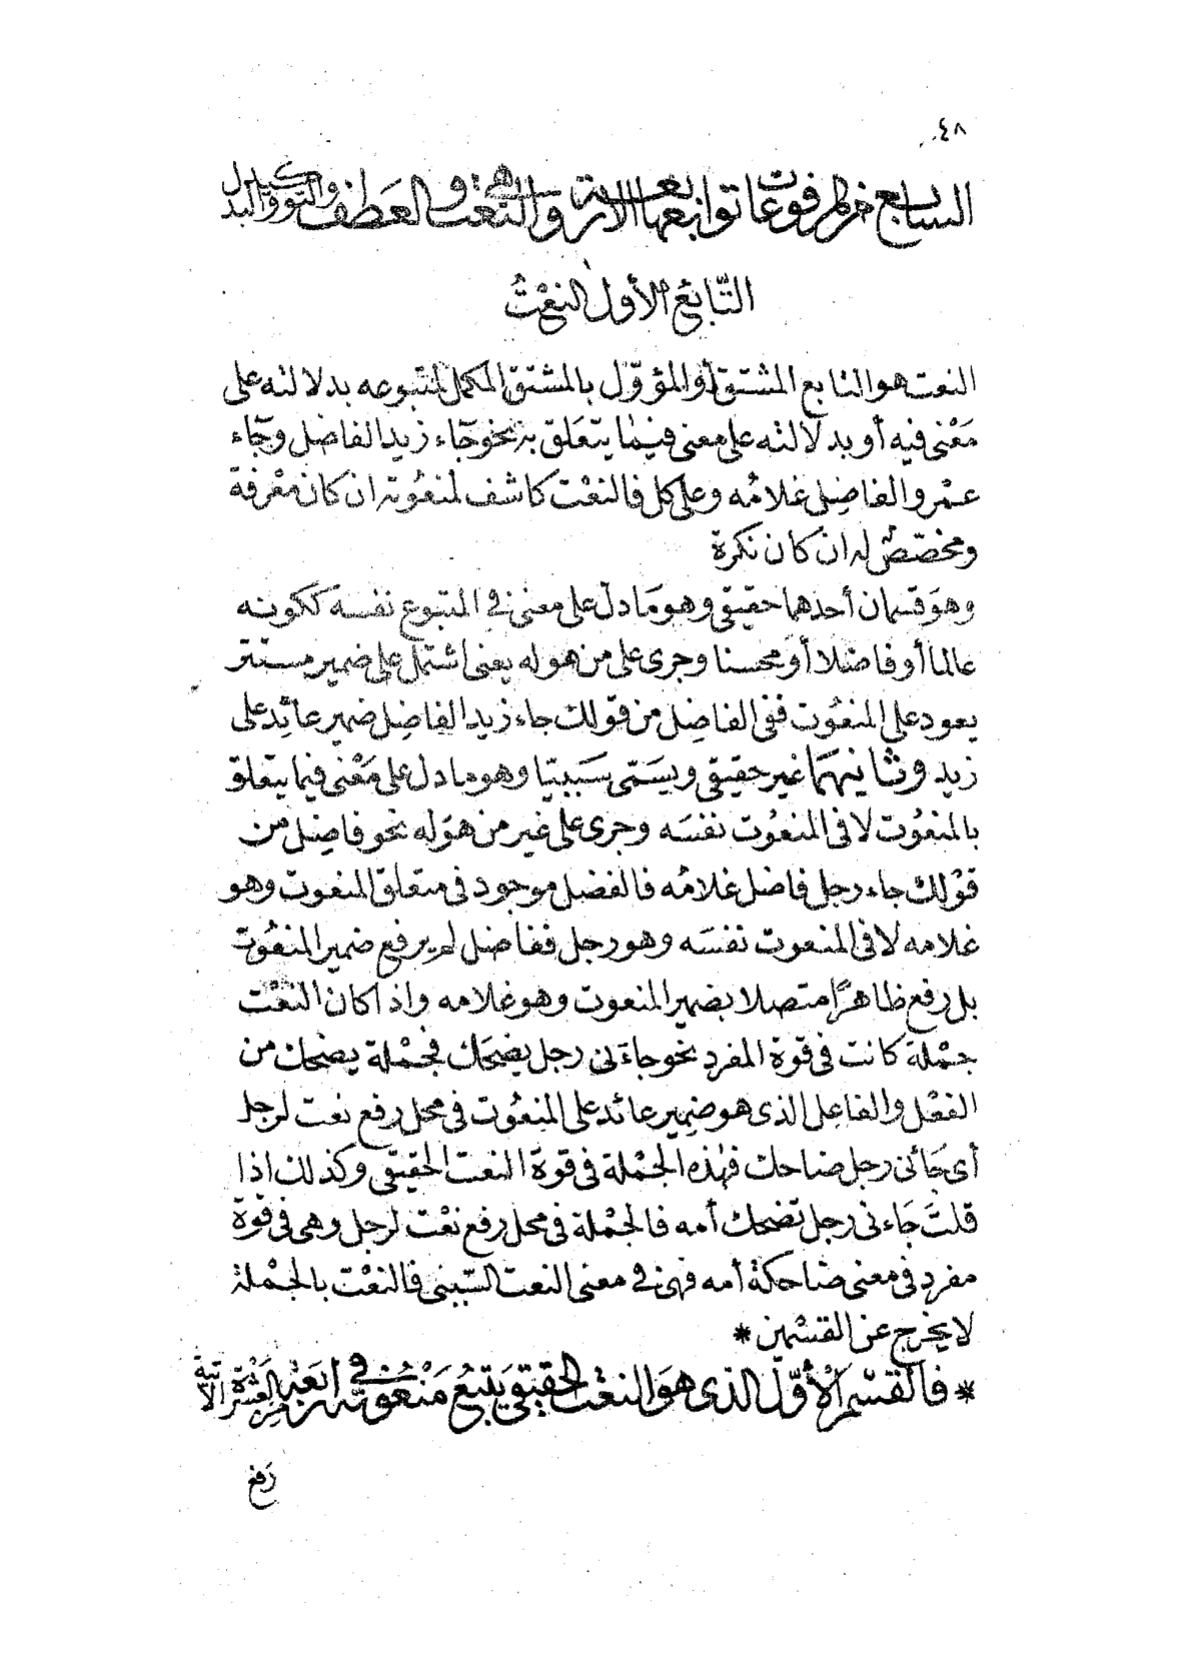 ٤٨
السابع من المرفوعات توابعها الاربعة وهى النعت والعطف والتوكيد والبدل
التّابعُ الأول النعْتُ
النعت هو التابع المشتق أو المؤوّل بالمشتق المكمل لمتبوعه بدلالته على
مَعْنى فيه أو بدلالته على معنى فيما يتعَلق به نحو جَاء زيد الفاضل وجَاء
عمْرو الفاضِل غلامُه وعلى كل فالنعْت كاشف لمنعُوته ان كان معْرفة
ومخصّصٌ له ان كان نكرة
وهوَ قسمان أحدهما حقيقى وهو مَا دل على معنىً فى المتبوع نفسه ككونه
عالما أو فاضلا أو محسنا وجرى على من هو له يعنى اشتمل على ضمير مستتر
يعود على المنعُوت ففى الفاضِل من قولك جاء زيد الفاضِل ضمير عائِد على
زيد وثانيهمَا غير حقيقى ويسَمّى سَببيّا وهو ما دل على مَعْنى فيما يتعلق
بالمنعُوت لا فى المنعُوت نفسَه وجرى على غير من هوَ له نحو فاضِل من
قوْلك جاء رجل فاضل غلامُه فالفضل موجود فى متعلق المنعوت وهو
غلامه لا فى المنعوت نفسَه وهو رجل ففاضل لم يرفع ضمير المنعُوت
بل رفع ظاهرًا متصلا بضمير المنعوت وهو غلامه واذا كان النعْت
جمْلة كانت فى قوة المفرد نحو جاءَنى رجل يضحَك فجمْلة يضحك من
الفعْل والفاعِل الذى هو ضمير عائد على المنعُوت فى محل رفع نعت لرجل
أى جَائنى رجل ضاحك فهذه الجمْلة فى قوة النعت الحقيقى وكذلك اذا
قلتَ جَاءنى رجل تضحك أمه فالجمْلة فى محل رفع نعْت لرجل وهى فى قوة
مفرد فى معنى ضاحكة أمه فهى فى معنى النعت السّببى فالنعْت بالجمْلة
لا يخرج عن القسْمين *
* فالقسْم الأوّل الذى هوَ النعْت الحقيقى يَتبَعُ مَنْعُوته فى أربَعَة من العَشْرة الآتية
رَفع